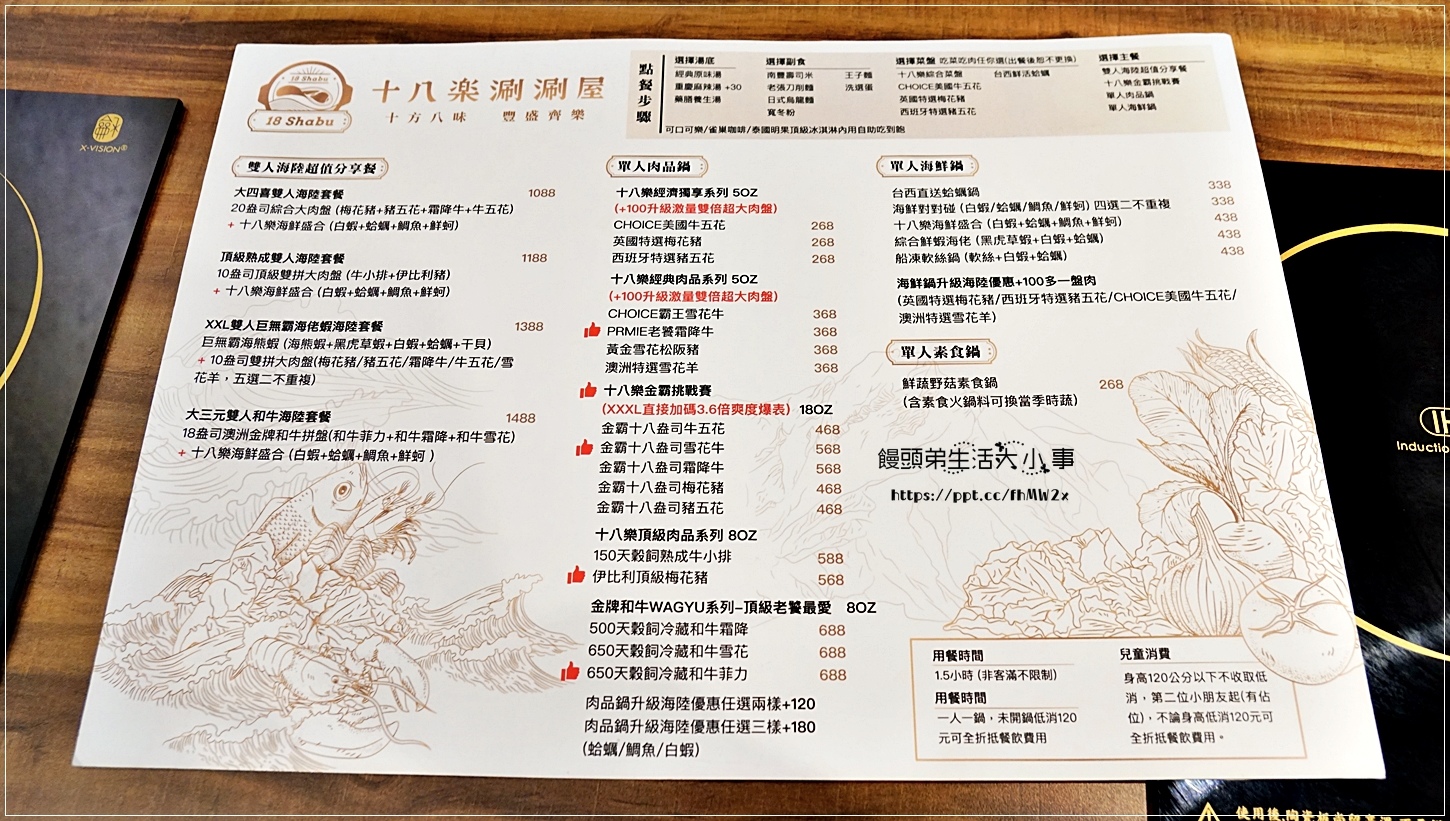 18 Shabu
18 Shabu
十八楽涮涮屋
十方八味 豐盛齊樂
點餐步驟
選擇湯底
經典原味湯
重慶麻辣湯 +30
藥膳養生湯
選擇副食
南豐壽司米 王子麵
老張刀削麵 洗選蛋
日式烏龍麵
寬冬粉
選擇菜盤 吃菜吃肉任你選(出餐後恕不更換)
十八樂綜合菜盤 台西鮮活蛤蠣
CHOICE美國牛五花
英國特選梅花豬
西班牙特選豬五花
選擇主餐
雙人海陸超值分享餐
十八樂金霸挑戰賽
單人肉品鍋
單人海鮮鍋
可口可樂/雀巢咖啡/泰國明果頂級冰淇淋內用自助吃到飽
雙人海陸超值分享餐
大四喜雙人海陸套餐 1088
20盎司綜合大肉盤 (梅花豬+豬五花+霜降牛+牛五花)
+ 十八樂海鮮盛合 (白蝦+蛤蠣+鯛魚+鮮蚵)
頂級熟成雙人海陸套餐 1188
10盎司頂級雙拼大肉盤 (牛小排+伊比利豬)
+ 十八樂海鮮盛合 (白蝦+蛤蠣+鯛魚+鮮蚵)
XXL雙人巨無霸海佬蝦海陸套餐 1388
巨無霸海熊蝦 (海熊蝦+黑虎草蝦+白蝦+蛤蠣+干貝)
+ 10盎司雙拼大肉盤(梅花豬/豬五花/霜降牛/牛五花/雪
花羊，五選二不重複)
大三元雙人和牛海陸套餐 1488
18盎司澳洲金牌和牛拼盤(和牛菲力+和牛霜降+和牛雪花)
+ 十八樂海鮮盛合 (白蝦+蛤蠣+鯛魚+鮮蚵 )
單人肉品鍋
十八樂經濟獨享系列 5OZ
(+100升級激量雙倍超大肉盤)
CHOICE美國牛五花 268
英國特選梅花豬 268
西班牙特選豬五花 268
十八樂經典肉品系列 5OZ
(+100升級激量雙倍超大肉盤)
CHOICE霸王雪花牛 368
PRMIE老饕霜降牛 368
黃金雪花松阪豬 368
澳洲特選雪花羊 368
十八樂金霸挑戰賽
(XXXL直接加碼3.6倍爽度爆表) 18OZ
金霸十八盎司牛五花 468
金霸十八盎司雪花牛 568
金霸十八盎司霜降牛 568
金霸十八盎司梅花豬 468
金霸十八盎司豬五花 468
十八樂頂級肉品系列 8OZ
150天穀飼熟成牛小排 588
伊比利頂級梅花豬 568
金牌和牛WAGYU系列–頂級老饕最愛 8OZ
500天穀飼冷藏和牛霜降 688
650天穀飼冷藏和牛雪花 688
650天穀飼冷藏和牛菲力 688
肉品鍋升級海陸優惠任選兩樣+120
肉品鍋升級海陸優惠任選三樣+180
(蛤蠣/鯛魚/白蝦)
單人海鮮鍋
台西直送蛤蠣鍋 338
海鮮對對碰 (白蝦/蛤蠣/鯛魚/鮮蚵) 四選二不重複 338
十八樂海鮮盛合 (白蝦+蛤蠣+鯛魚+鮮蚵) 438
綜合鮮蝦海佬 (黑虎草蝦+白蝦+蛤蠣) 438
船凍軟絲鍋 (軟絲+白蝦+蛤蠣) 438
海鮮鍋升級海陸優惠+100多一盤肉
(英國特選梅花豬/西班牙特選豬五花/CHOICE美國牛五花/
澳洲特選雪花羊)
單人素食鍋
鮮蔬野菇素食鍋 268
(含素食火鍋料可換當季時蔬)
饅頭弟生活大小事
https://ppt.cc/fhMW2x
用餐時間
1.5小時 (非客滿不限制)
用餐時間
一人一鍋，未開鍋低消120
元可全折抵餐飲費用
兒童消費
身高120公分以下不收取低
消，第二位小朋友起(有佔
位)，不論身高低消120元可
全折抵餐飲費用。
X-VISION®
IH
Induction
使用後,陶瓷板尚留高溫